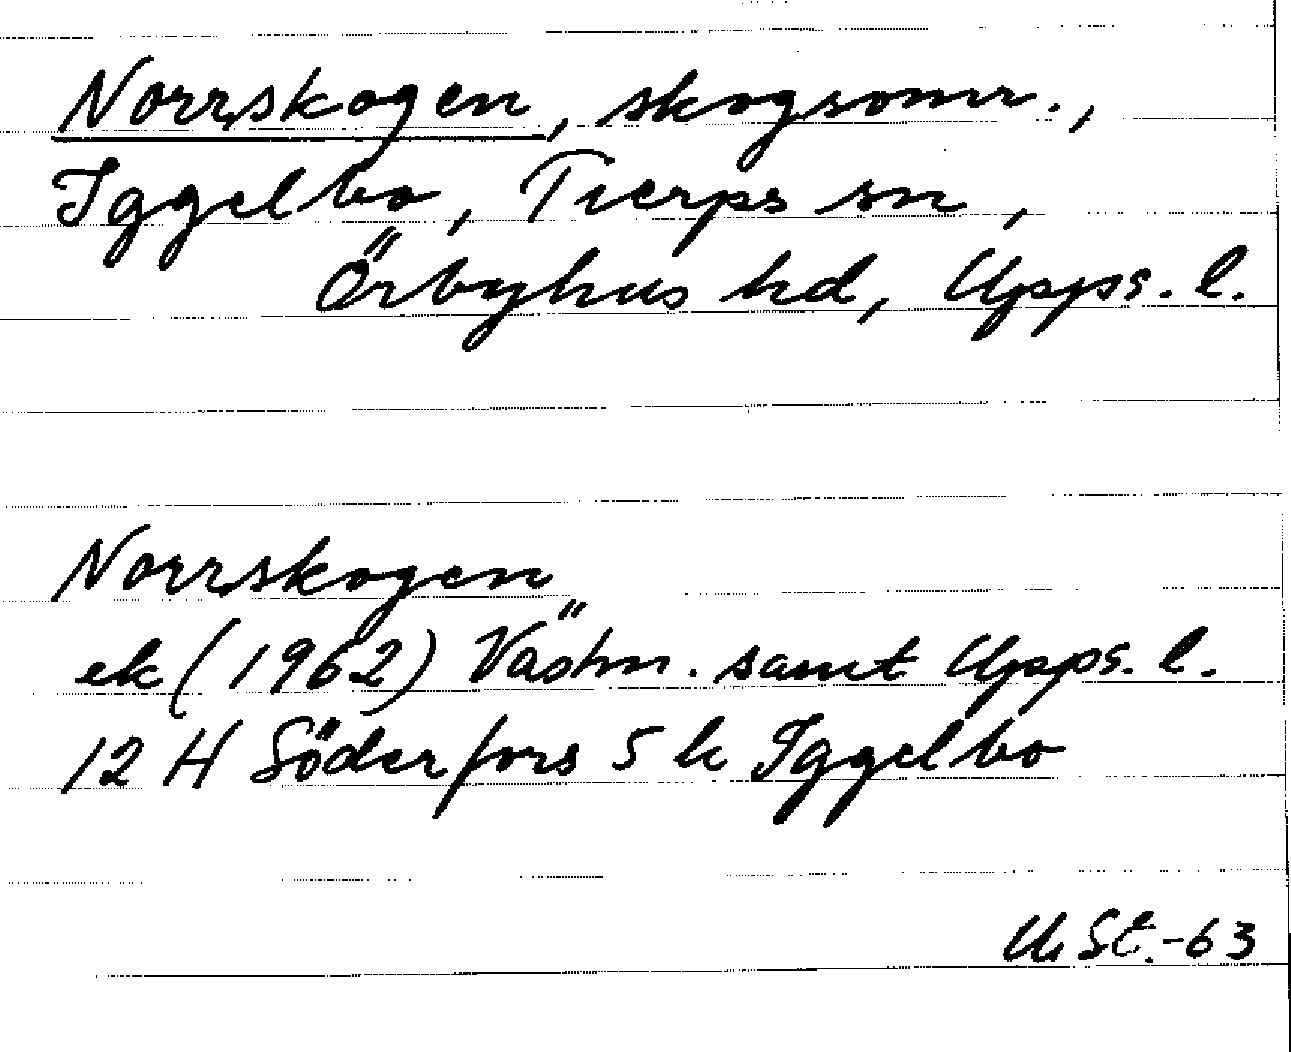 Norrskogen, skogsomr.,
Iggelbo, Tierps sn,
Örbyhus hd, Upps. l.
Norrskogen
ek (1962) Västm. samt Upps. l.
12 H Söderfors 5 h Iggelbo
U. St. -63